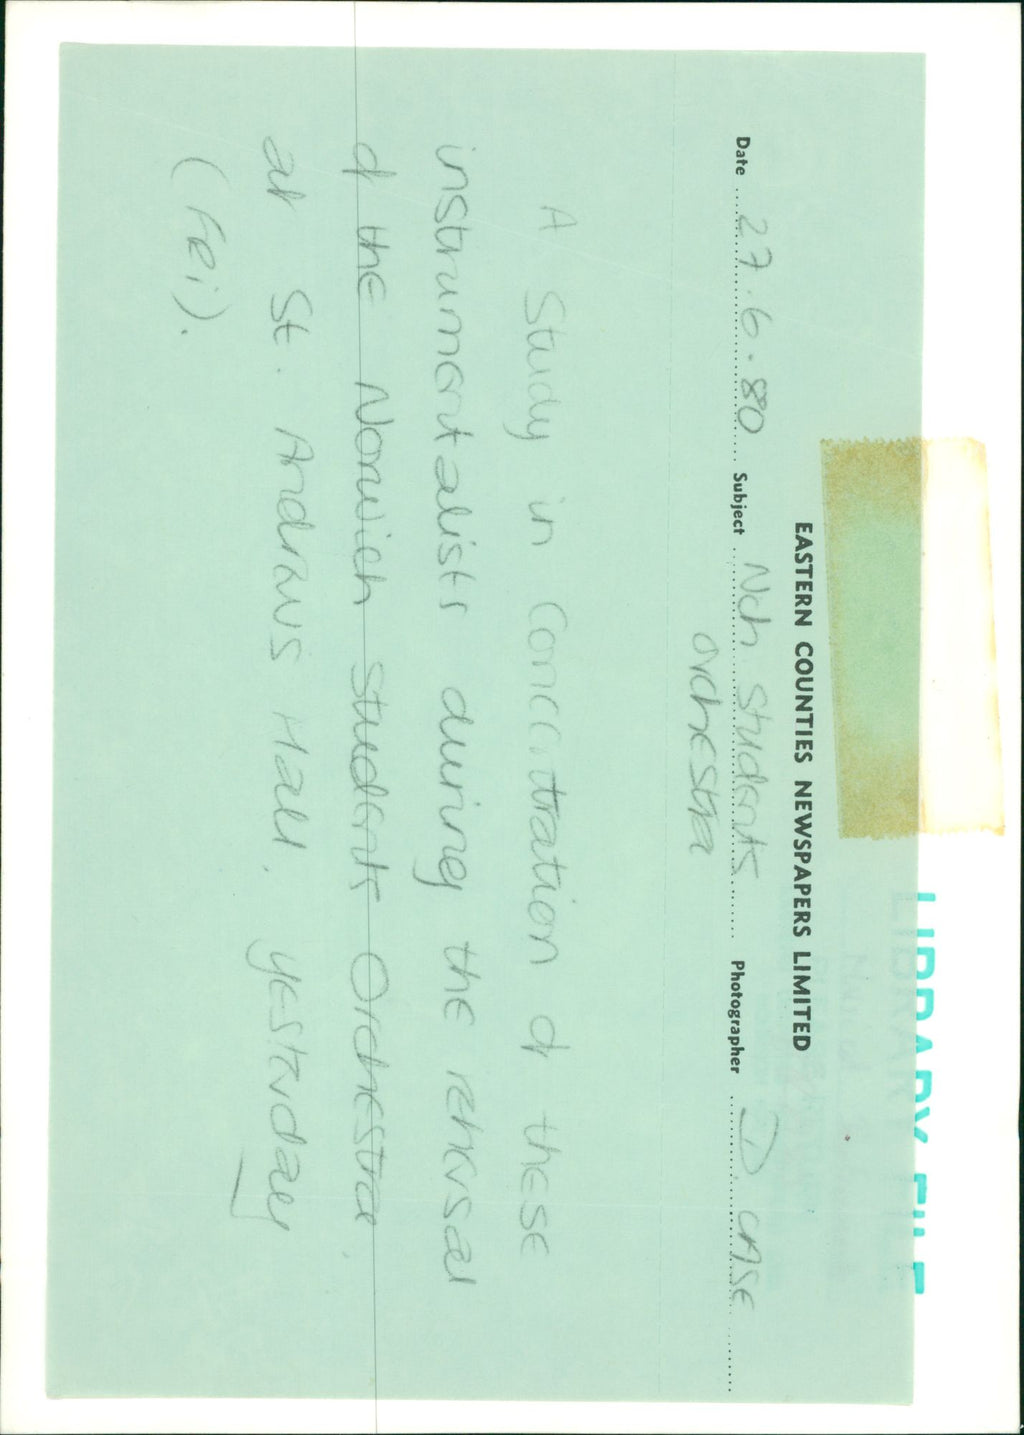 LIBRARY FILE
EASTERN COUNTIES NEWSPAPERS LIMITED
Date 27.6.80 Subject Nch Students Photographer D. CASE
orchestra
A Study in Concentration of these
instrumentalists during the rehersal
of the Norwich Students Orchestra
at St. Andrews Hall, yesterday
(Fri).